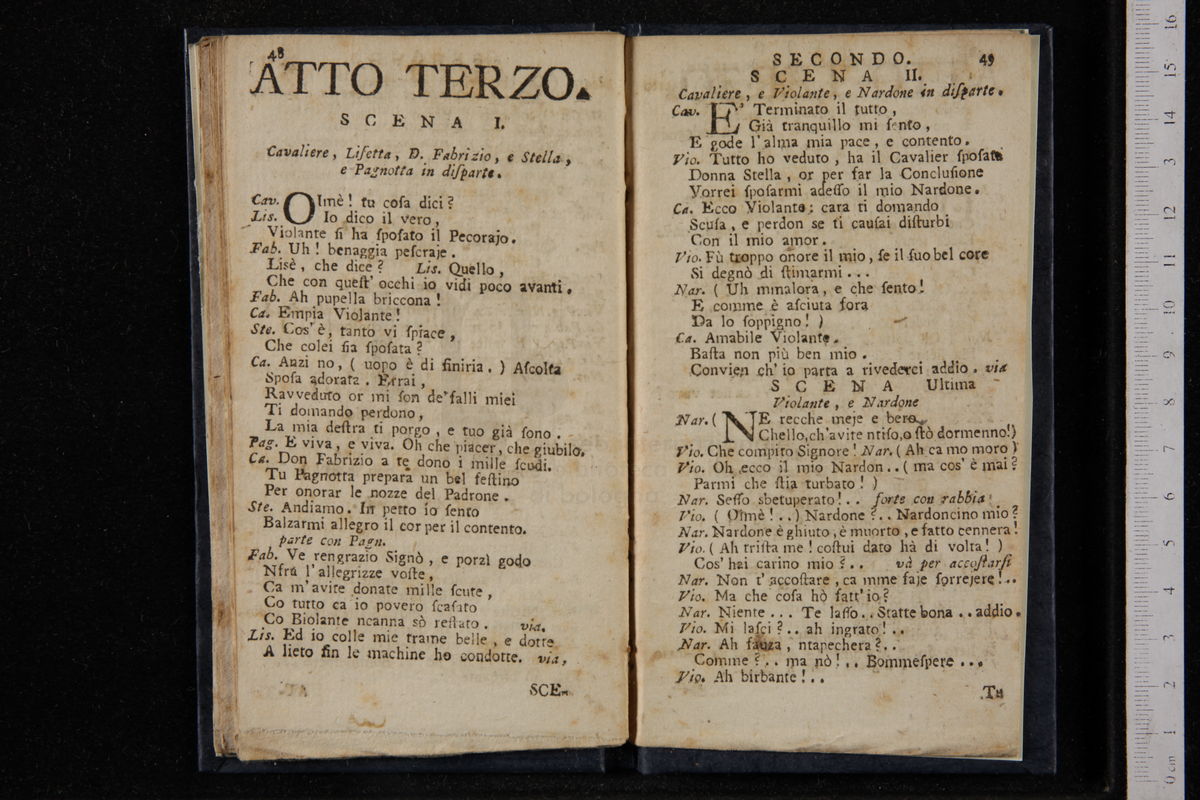 48
ATTO TERZO.
SCENA I.
Cavaliere, Liſetta, D. Fabrizio, e Stella,
e Pagnotta in diſparte.
Cav. OImè! tu coſa dici?
Lis. Io dico il vero,
Violante ſi ha ſpoſato il Pecorajo.
Fab. Uh! benaggia peſcraje.
Lisè, che dice? Lis. Quello,
Che con queſt' occhi io vidi poco avanti.
Fab. Ah pupella briccona!
Ca. Empia Violante!
Ste. Cos'è, tanto vi ſpiace,
Che colei ſia ſpoſata?
Ca. Anzi no, ( uopo è di finiria. ) Aſcolta
Spoſa adorata. Errai,
Ravveduto or mi ſon de' falli miei
Ti domando perdono,
La mia deſtra ti porgo, e tuo già ſono.
Pag. E viva, e viva. Oh che piacer, che giubilo.
Ca. Don Fabrizio a te dono i mille ſcudi.
Tu Pagnotta prepara un bel feſtino
Per onorar le nozze del Padrone.
Ste. Andiamo. In petto io ſento
Balzarmi allegro il cor per il contento.
parte con Pagn.
Fab. Ve rengrazio Signò, e porzì godo
Nfrà l'allegrizze voſte,
Ca m'avite donate mille ſcute,
Co tutto ca io povero ſcaſato
Co Biolante ncanna sò reſtato. via.
Lis. Ed io colle mie trame belle, e dotte
A lieto fin le machine ho condotte. via,
SCE-
SECONDO. 49
SCENA II.
Cavaliere, e Violante, e Nardone in diſparte.
Cav. E' Terminato il tutto,
Già tranquillo mi ſento,
E gode l'alma mia pace, e contento.
Vio. Tutto ho veduto, ha il Cavalier ſpoſata
Donna Stella, or per far la Concluſione
Vorrei ſpoſarmi adeſſo il mio Nardone.
Ca. Ecco Violante: cara ti domando
Scuſa, e perdon se ti cauſai diſturbi
Con il mio amor.
Vio. Fù troppo onore il mio, ſe il ſuo bel core
Si degnò di ſtimarmi...
Nar. ( Uh mmalora, e che ſento!
E comme è aſciuta fora
Da lo ſoppigno! )
Ca. Amabile Violante.
Baſta non più ben mio.
Convien ch' io parta a rivederci addio. via
SCENA Ultima
Violante, e Nardone
Nar. ( NE recche meje e bero,
Chello, ch'avite ntiſo, o ſtò dormenno!)
Vio. Che compito Signore! Nar. ( Ah ca mo moro )
Vio. Oh ecco il mio Nardon.. ( ma cos' è mai?
Parmi che ſtia turbato! )
Nar. Seſſo sbetuperato!.. forte con rabbia
Vio. ( Oimè!..) Nardone?.. Nardoncino mio?
Nar. Nardone è ghiuto, è muorto, e fatto cennera!
Vio. ( Ah triſta me! coſtui dato hà di volta! )
Cos' hai carino mio?.. và per accoſtarſi
Nar. Non t' accoſtare, ca mme faje ſorrejere!..
Vio. Ma che coſa hò fatt' io?
Nar. Niente... Te laſſo.. Statte bona.. addio.
Vio. Mi laſci?.. ah ingrato!..
Nar. Ah fauza, ntapechera?..
Comme?.. ma nò!.. Bommeſpere...
Vio. Ah birbante!..
Tu